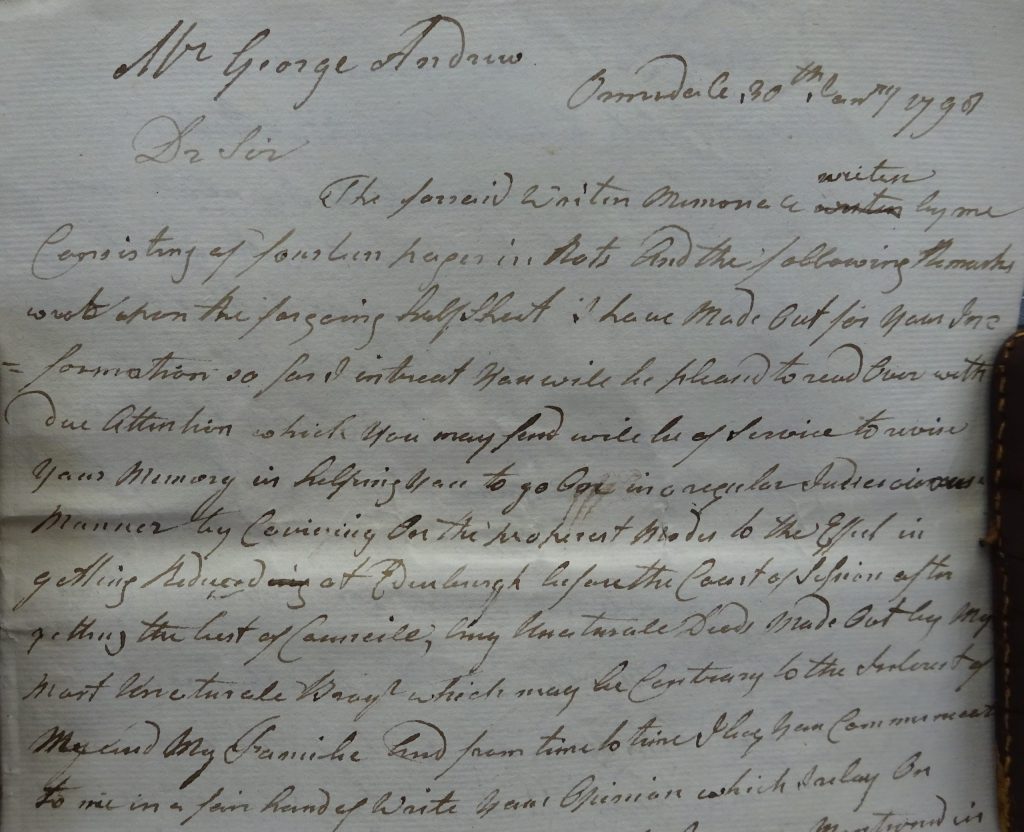 Mr George Andrew
Ormsdale 30th Janry 1798
Dr Sir
The forsaid Writen Memoriale writen by me
Consisting of fourteen pages in Nots And the following Remarks
wrote upon the forgoing half Sheet I have Made Out for Your In=
=formation so far I intreat You will be pleased to read Over with
due Attention which You may find will be of Service to revise
Your Memory in helping You to go On in a regular Judiciaious
Manner by Carrieing On the properest Modes to the Effect in
getting Reduced at Edenburgh before the Court of Session after
getting the best of Councile, any Unaturale Deeds Made Out by My
Most Unaturale which may be Contrary to the Interest of
My and My Familie And from time to time I beg You Communicate
to me in a fair hand of Write Your Opinion which I relay On
Mentioned in